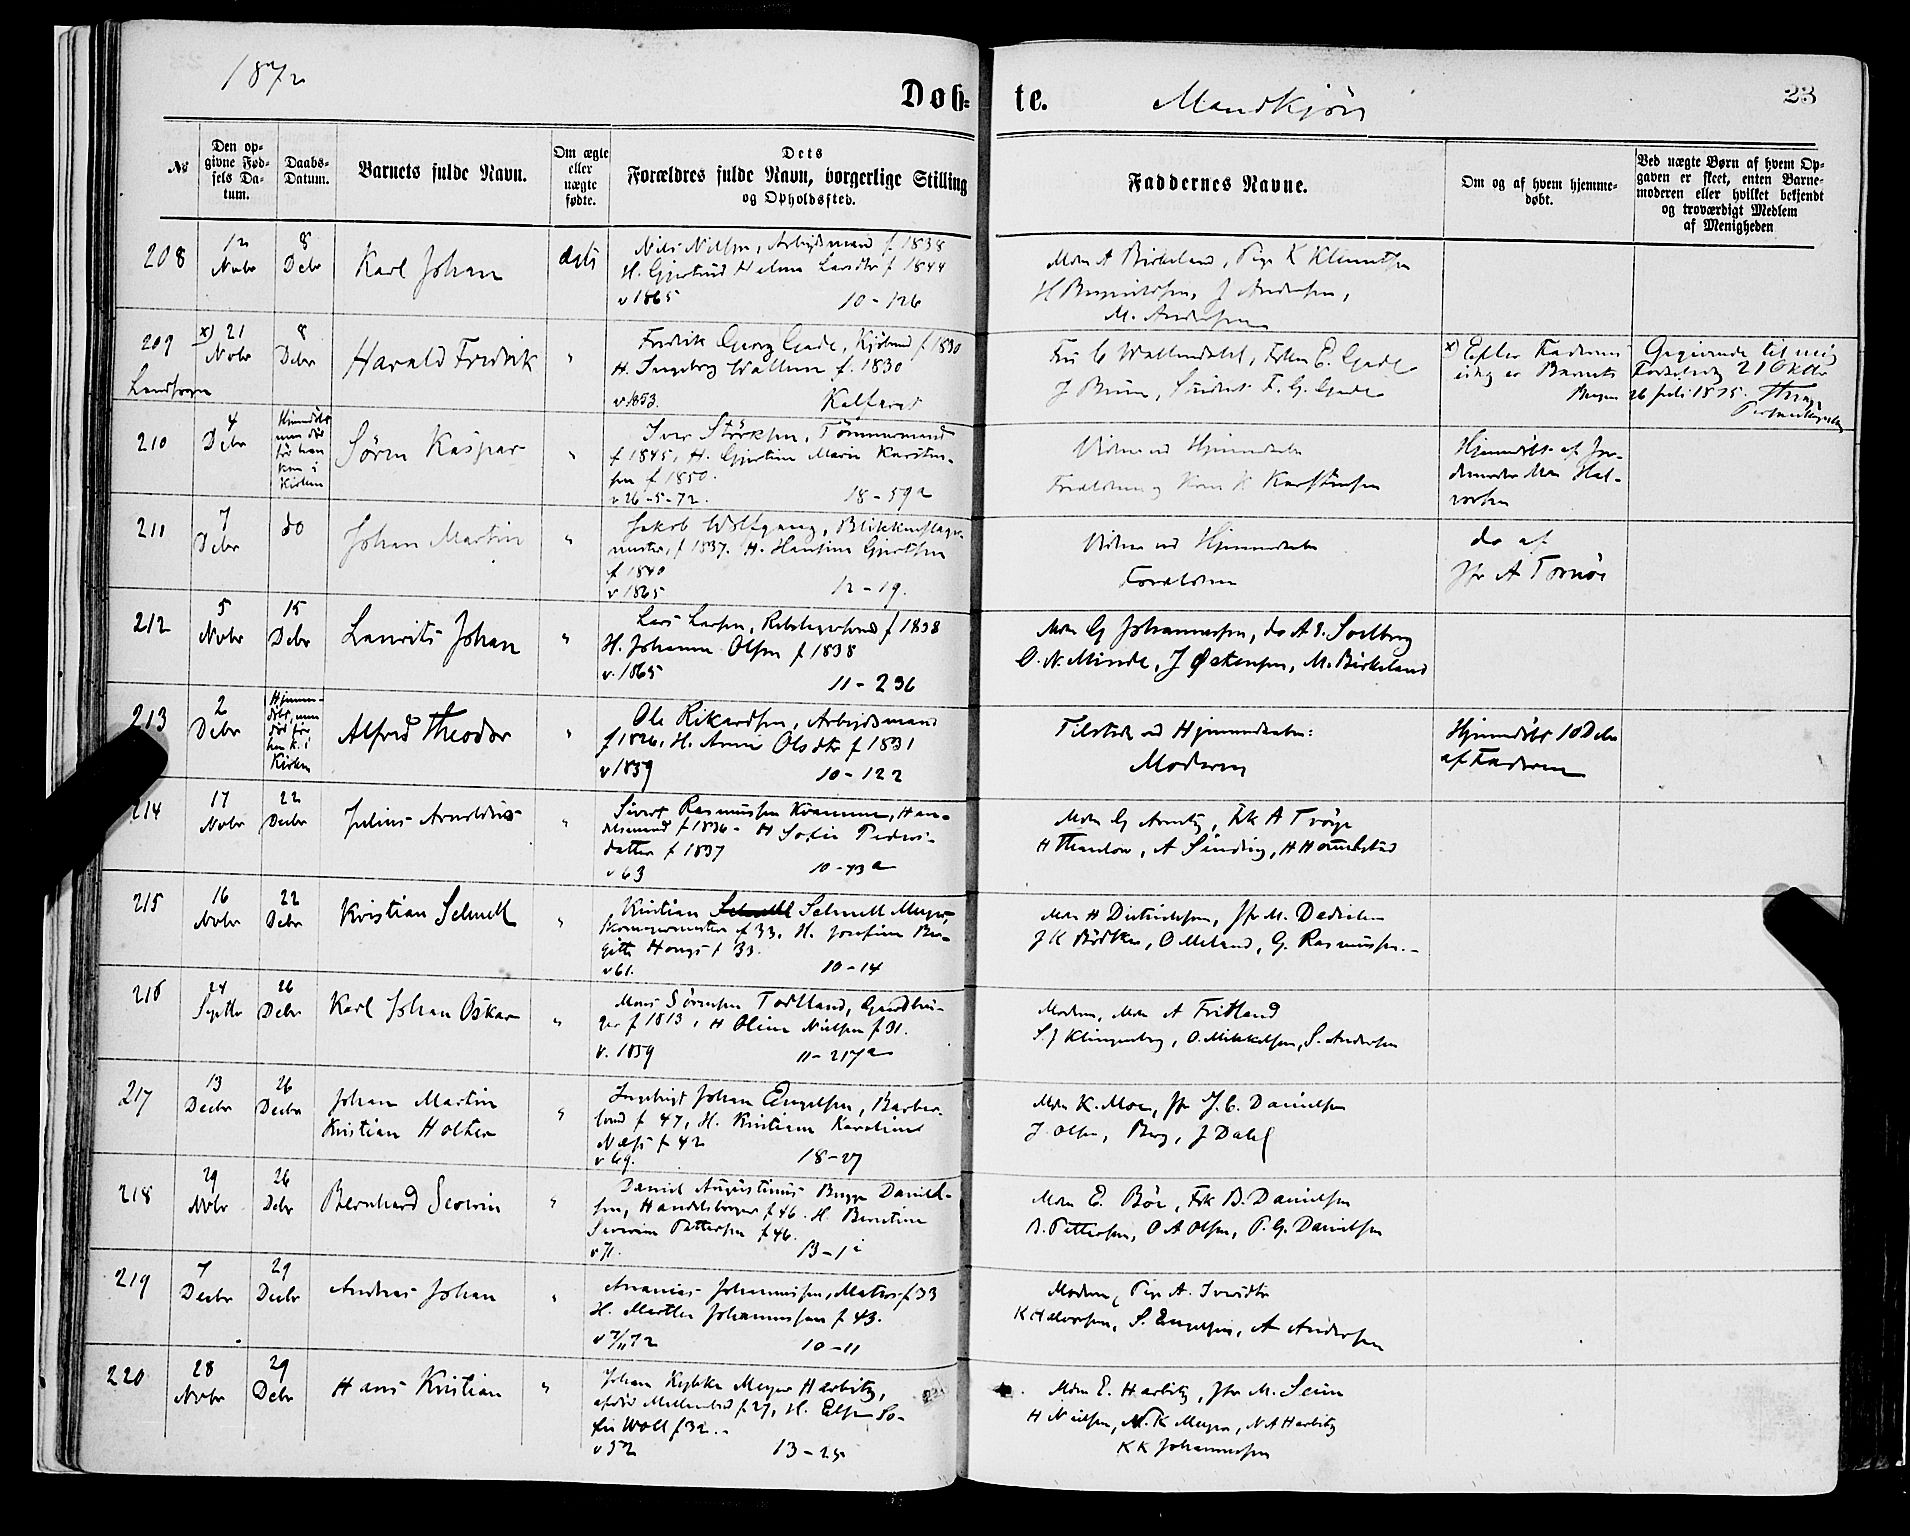 1872
Døb=
te.
Mandkjøn
23
№
Den op-
givne Fød-
sels Da-
tum.
Daabs-
Datum.
Barnets fulde Navn.
Om ægte
eller
uægte
fødte.
Dets
Forældres fulde Navn, borgerlige Stilling
og Opholdssted.
Faddernes Navne.
Om og af hvem hjemme-
døbt.
Ved uægte Børn af hvem Op-
gaven er skeet, enten Barne-
moderen eller hvilket bekjendt
og troværdigt Medlem
af Menigheden
208
12
Novbr
8
Debr
Karl Johan
ægte
Nils Nilsen, Arbejdsmand f 1838
H. Gjertrud Helena Larsdtr f 1844
v 1865 10-126
Mdm A Birkeland, Pige K Klemetsen
J Andersen,
M. Andersen
209
x) 21
Novbr
8
Debr
Harald Fredrik
"
Fredrik Georg Gade, Kjøbmd f 1830
H. Ingeborg Wallem f. 1830
v 1853. Kalfaret
Fru C Wallendahl, Frken E. Gade
J Bruun, Student F. G. Gade
x) Efter Faderens
er Barnets
Bergen 26 Juli 1875.
210
4
Debr
Hjemmedøbt
men død
før han
kom i
Kirken
Søren Kaspar
"
Iver Størksen, Tømmermand
f 1845, H. Gjertine Marie Karsten-
sen f 1850.
v 26-5-72. 18-59a
Vidner ved Hjemmedaaben
Forældrene og Kone K Karstensen
Hjemmedøbt af Jor-
demoder Mdm Hal-
vorsen
211
7
Debr
do
Johan Martin
"
Jakob Wolfgang, Blikkenslager-
mester, f 1837. H. Hansine Gjertsen
f 1840
v 1865 12-19.
Vidner ved Hjemmedaaben
Forældrene
do af
Jfr A Tornøe
212
5
Novbr
15
Debr
Laurits Johan
"
Lars Larsen, Rebslagersvend f 1838
H. Johanne Olsen f 1838
v. 1865 11-236
Mdm G Johannessen, do A E. Soelberg
O. N. Minde, J Østensen, M. Birkeland
213
2
Debr
Hjemme-
døbt, men
død før
han k. i
Kirken
Alfred Theodor
"
Ole Rikardsen, Arbejdsmand
f 1826, H. Anne Olsdtr f 1831
v 1859 10-122
Tilstede ved Hjemmedaaben:
Moderen
Hjemmedøbt 10 Debr
af Faderen
214
17
Novbr
22
Decbr
Julius Arnoldus
"
Sivert Rasmussen Kvamme, Han-
delsmand f 1836- H Sofie Peders-
datter f 1837
v 63 10-73a
Mdm G Arentz, Frk A Trøye
H Thaulow, A Sinding, H Hommelstad
215
16
Novbr
22
Debr
Kristian Schnell
"
Kristian Schnell Meyer,
Skomagermester f 33, H. Josefine Bir-
gitte Haugs f 33.
v 61. 10-14
Mdm H Dietrichsen, Jfr M. Dedichen
J K Bødtker, O Meland, G. Rasmussen.-
216
24
Septbr
26
Debr
Karl Johan Oskar
"
Mons Sørensen Todtland, Gaardbru-
ger f 1813, H Oline Nielsen f 31.
v. 1859 11-217a
Moderen, Mdm A Fridland
S. J Klingenberg, O. Mikkelsen, S. Andersen
217
13
Decbr
26
Decbr
Johan Martin
Kristian Holter
"
Ingebrigt Johan Engelsen, Barber-
svend f 47, H. Kristiane Karoline
Næss f 42
v 69. 18-27
Mdm K. Moe, Jfr J. C. Danielsen
J. Olsen, Berg, J Dahl
218
29
Novbr
26
Debr
Bernhard Severin
"
Daniel Augustinus Bugge Daniel-
sen, Handelsborger f 46. H. Berntine
Severine Pettersen f 46.
v 71. 13-1i
Mdm E. Bøe, Frk D. Danielsen
B. Pettersen, O A Olsen, P. G. Danielsen
219
7
Decbr
29
Decbr
Andreas Johan
"
Ananias Johannessen, Matros f 33
H. Marthe Johannessen f 43.
v 7/11 72 10-11
Moderen, Pige A. Iversdtr
K Halvorsen, S. Engelsen, A Andersen
220
28
Novbr
29
Debr
Hans Kristian
"
Johan Meyer Harbitz,
f 27, H. Elsen So-
fie Woll f 32.-
v 52 13-25
Mdm E. Harbitz, Jfr M. Seim
H Nielsen, N. K Meyer, N A Harbitz
K K Johannessen